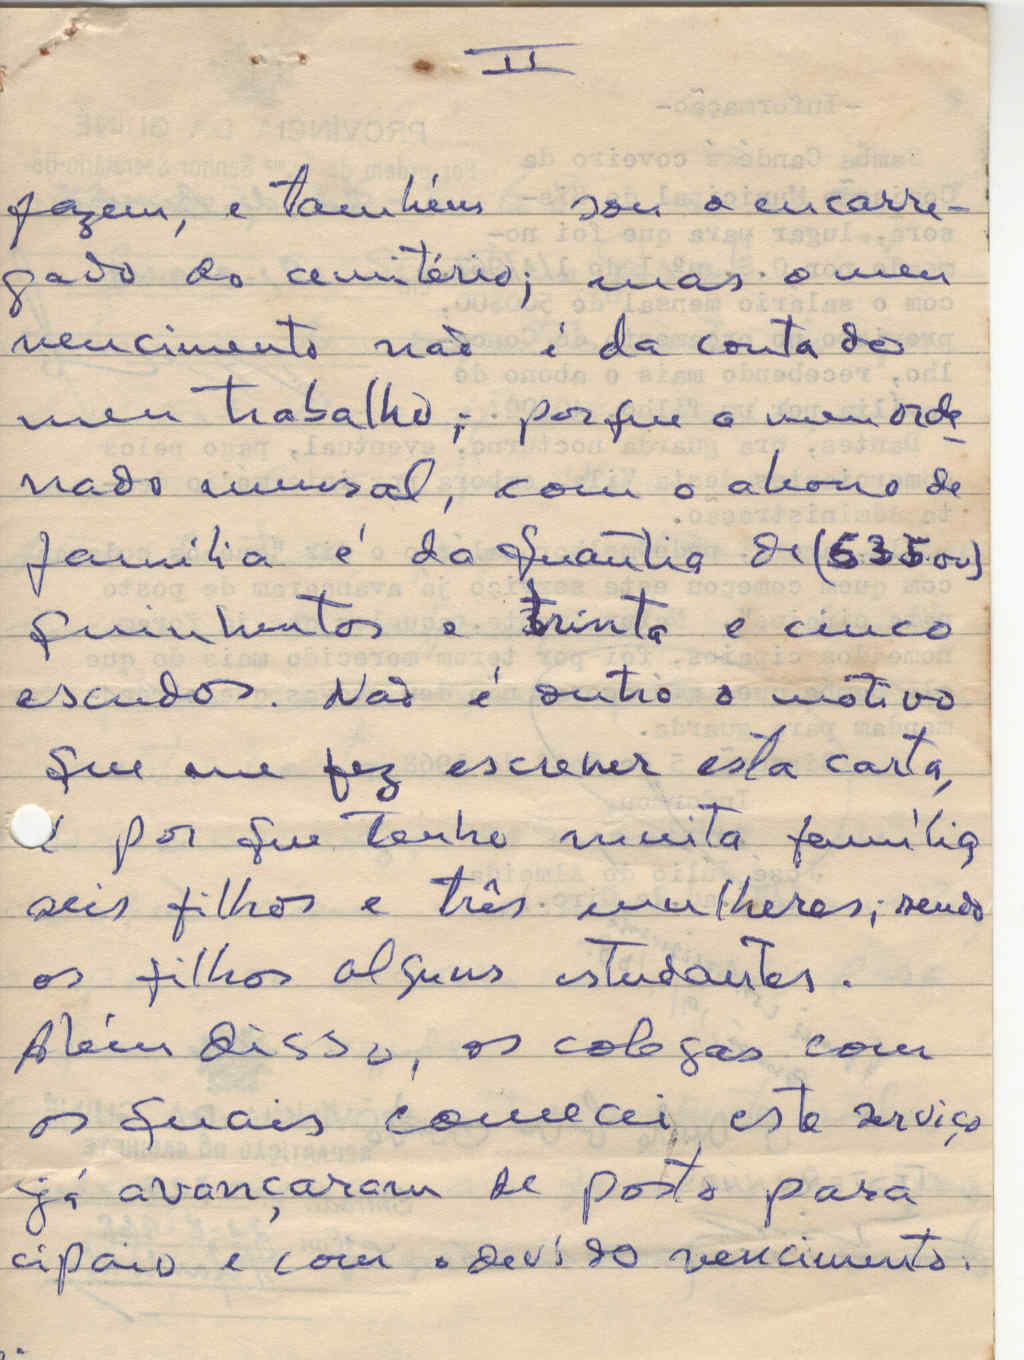 II
fazem, e também sou o encarre-
gado do cemitério; mas o meu
vencimento não é da conta do
meu trabalho; porque o meu orde-
nado mensal, com o abono de
família é da quantia de (535$00)
quinhentos e trinta e cinco
escudos. Não é outro o motivo
que me fez escrever esta carta,
é por que tenho muita família
seis filhos e três mulheres; sendo
os filhos alguns estudantes.
Além disso, os colegas com
os quais comecei este serviço
já avançaram de posto para
cipaio e com o devido vencimento.